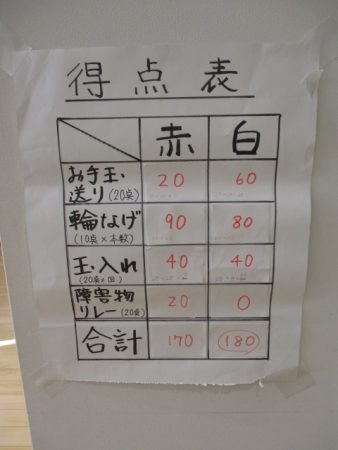 得点表
赤 白
お手玉送り(20点) 20 60
輪なげ(10点×本数) 90 80
玉入れ(20点×回) 40 40
障害物リレー(20点) 20 0
合計 170 180